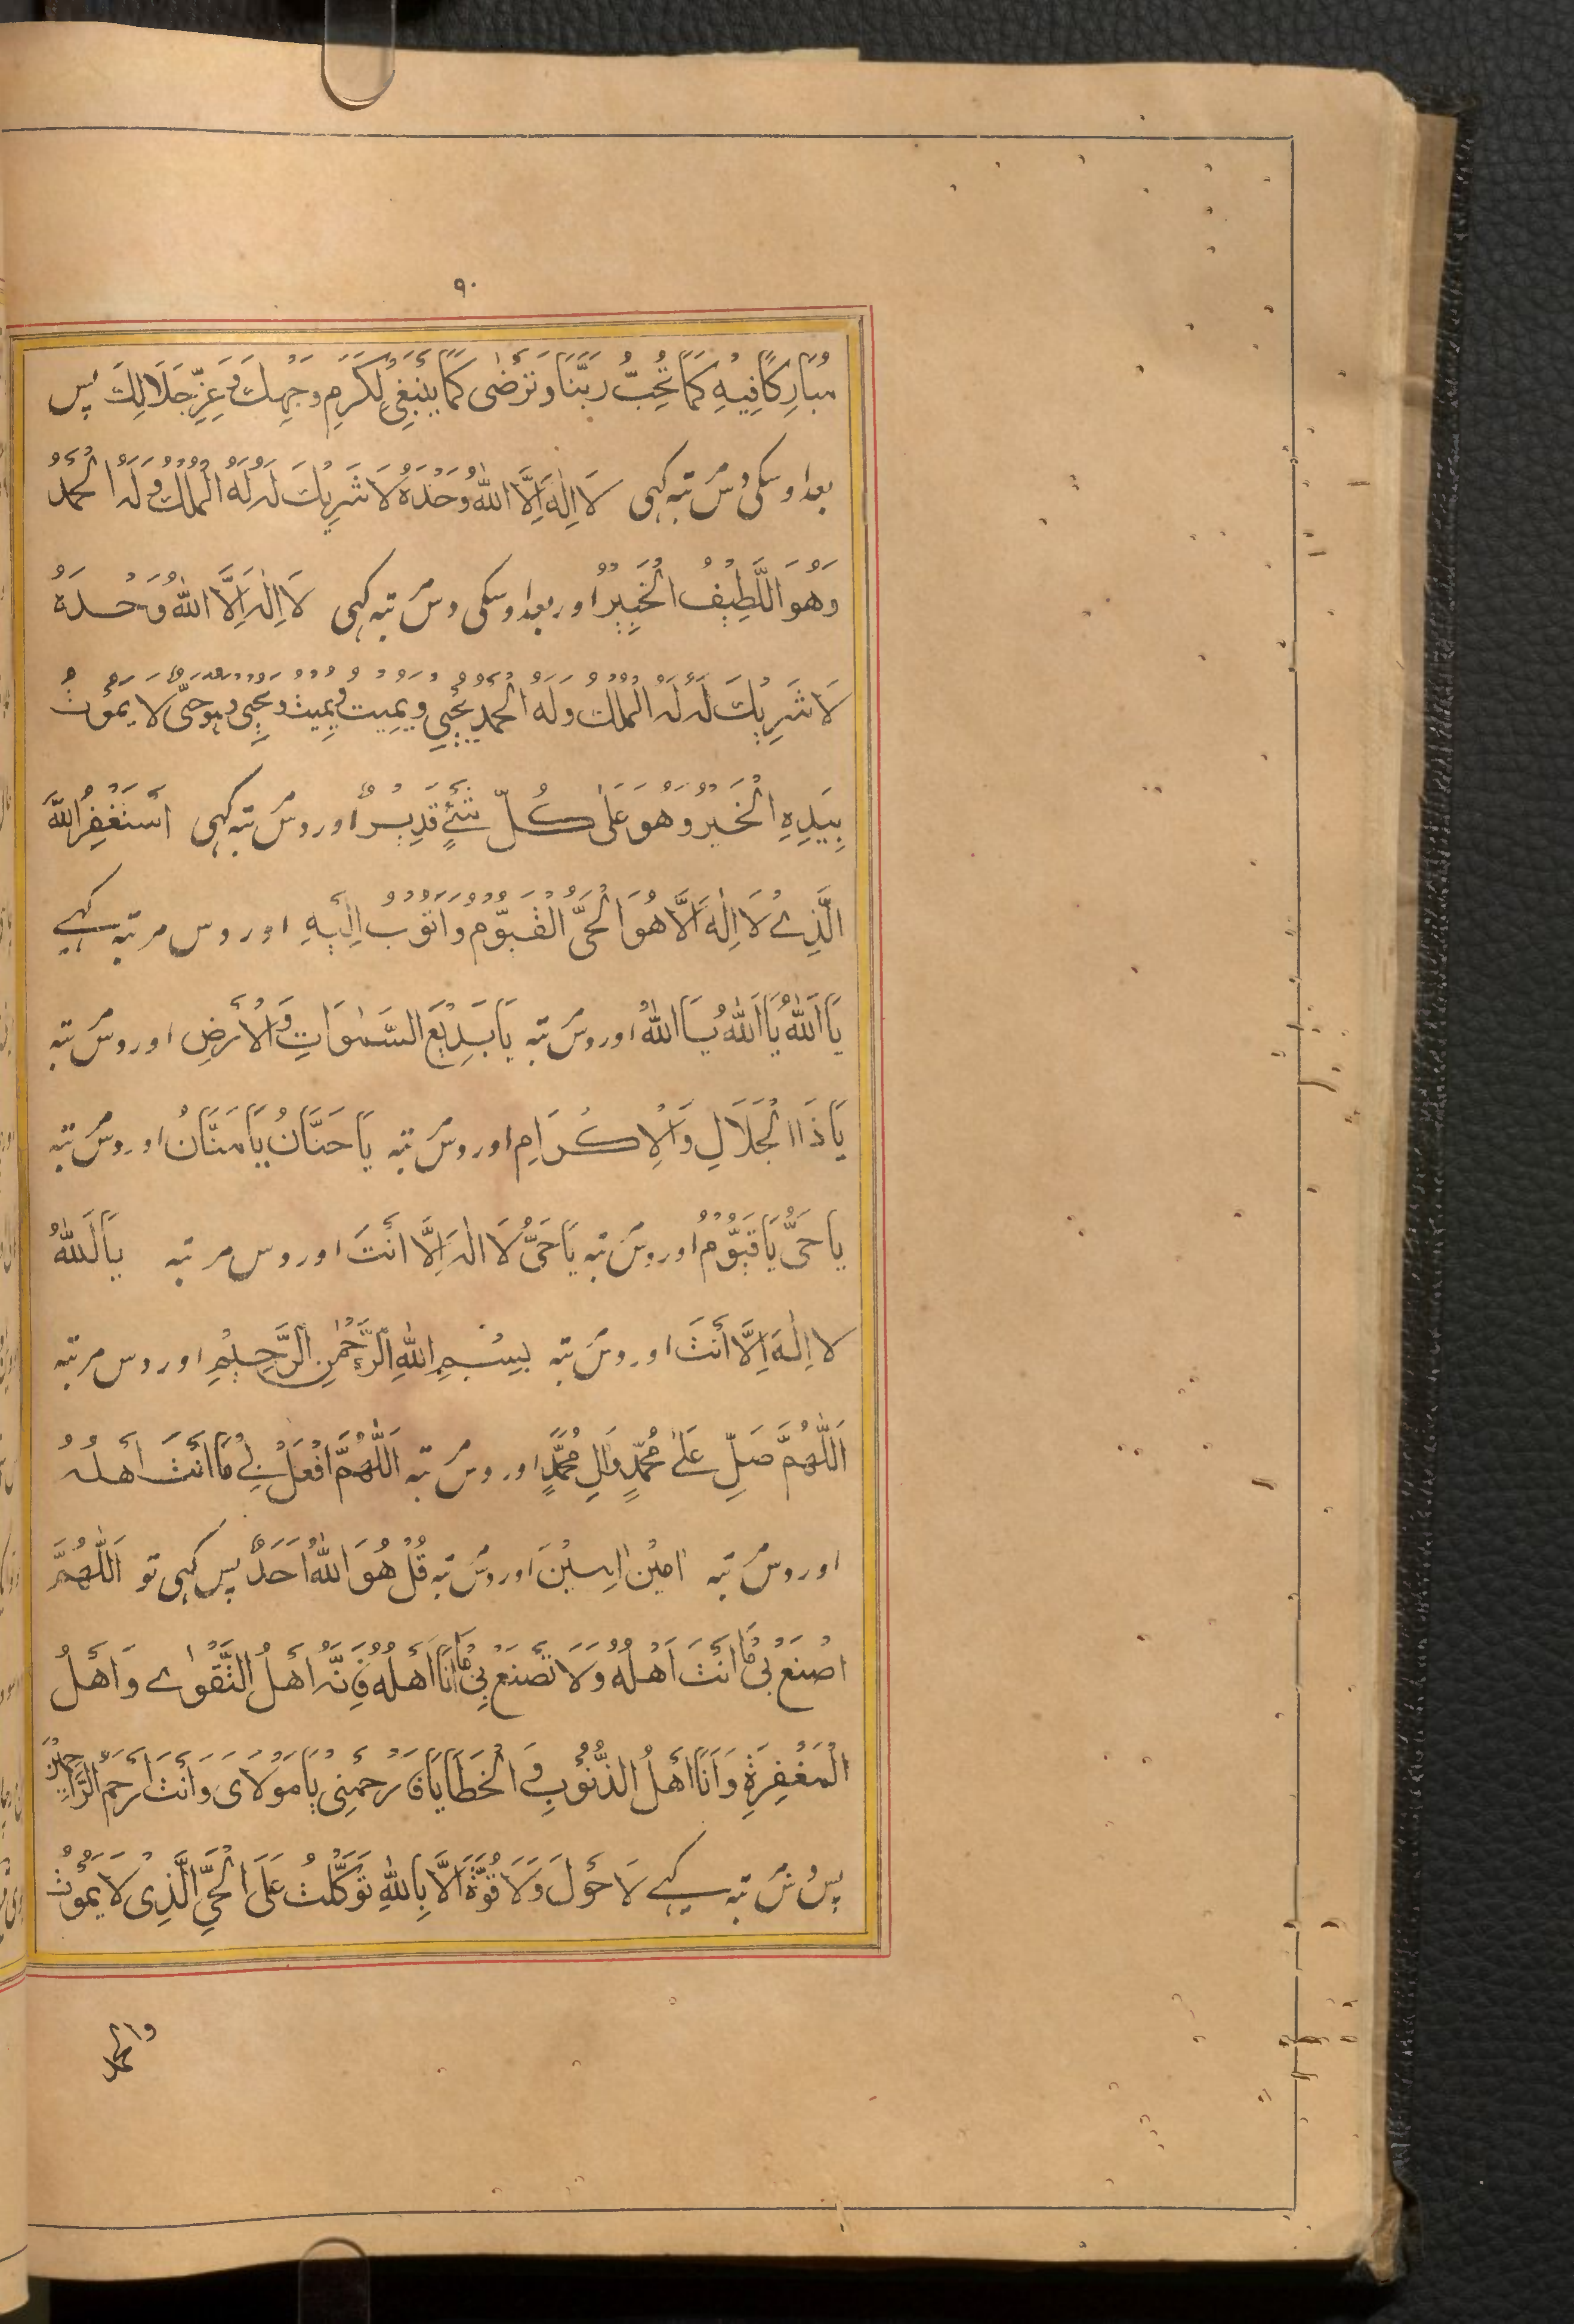 ٩٠
مُبَارَكًا فِيْهِ كَمَا تُحِبُّ رَبَّنَا وَتَرْضٰى كَمَا يَنْبَغِيْ لِكَرَمِ وَجْهِكَ وَعِزِّ جَلَالِكَ پس
بعد اوسکی دس مرتبہ کہی لَا اِلٰهَ اِلَّا اللّٰهُ وَحْدَهُ لَا شَرِيْكَ لَهُ لَهُ الْمُلْكُ وَلَهُ الْحَمْدُ
وَهُوَ اللَّطِيْفُ الْخَبِيْرُ اور بعد اوسکی دس مرتبہ کہی لَا اِلٰهَ اِلَّا اللّٰهُ وَحْدَهُ
لَا شَرِيْكَ لَهُ لَهُ الْمُلْكُ وَلَهُ الْحَمْدُ يُحْيِيْ وَيُمِيْتُ وَيُمِيْتُ وَيُحْيِيْ وَهُوَ حَيٌّ لَا يَمُوْتُ
بِيَدِهِ الْخَيْرُ وَهُوَ عَلٰى كُلِّ شَيْءٍ قَدِيْرٌ اور دس مرتبہ کہی اَسْتَغْفِرُ اللّٰهَ
الَّذِيْ لَا اِلٰهَ اِلَّا هُوَ الْحَيُّ الْقَيُّوْمُ وَاَتُوْبُ اِلَيْهِ اور دس مرتبہ کہے
يَا اَللّٰهُ يَا اَللّٰهُ يَا اَللّٰهُ اور دس مرتبہ يَا بَدِيْعَ السَّمٰوَاتِ وَالْاَرْضِ اور دس مرتبہ
يَا ذَا الْجَلَالِ وَالْاِكْرَامِ اور دس مرتبہ يَا حَنَّانُ يَا مَنَّانُ اور دس مرتبہ
يَا حَيُّ يَا قَيُّوْمُ اور دس مرتبہ يَا حَيُّ لَا اِلٰهَ اِلَّا اَنْتَ اور دس مرتبہ يَا اَللّٰهُ
لَا اِلٰهَ اِلَّا اَنْتَ اور دس مرتبہ بِسْمِ اللّٰهِ الرَّحْمٰنِ الرَّحِيْمِ اور دس مرتبہ
اَللّٰهُمَّ صَلِّ عَلٰى مُحَمَّدٍ وَاٰلِ مُحَمَّدٍ اور دس مرتبہ اَللّٰهُمَّ افْعَلْ بِيْ مَا اَنْتَ اَهْلُهُ
اور دس مرتبہ اٰمِيْنَ اٰمِيْنَ اور دس مرتبہ قُلْ هُوَ اللّٰهُ اَحَدٌ پس کہی تو اَللّٰهُمَّ
اصْنَعْ بِيْ مَا اَنْتَ اَهْلُهُ وَلَا تَصْنَعْ بِيْ مَا اَنَا اَهْلُهُ فَاِنَّكَ اَهْلُ التَّقْوٰى وَاَهْلُ
الْمَغْفِرَةِ وَاَنَا اَهْلُ الذُّنُوْبِ وَالْخَطَايَا فَارْحَمْنِيْ يَا مَوْلَايَ وَاَنْتَ اَرْحَمُ الرَّاحِمِيْنَ
پس دس مرتبہ کہے لَا حَوْلَ وَلَا قُوَّةَ اِلَّا بِاللّٰهِ تَوَكَّلْتُ عَلَى الْحَيِّ الَّذِيْ لَا يَمُوْتُ
والحمد